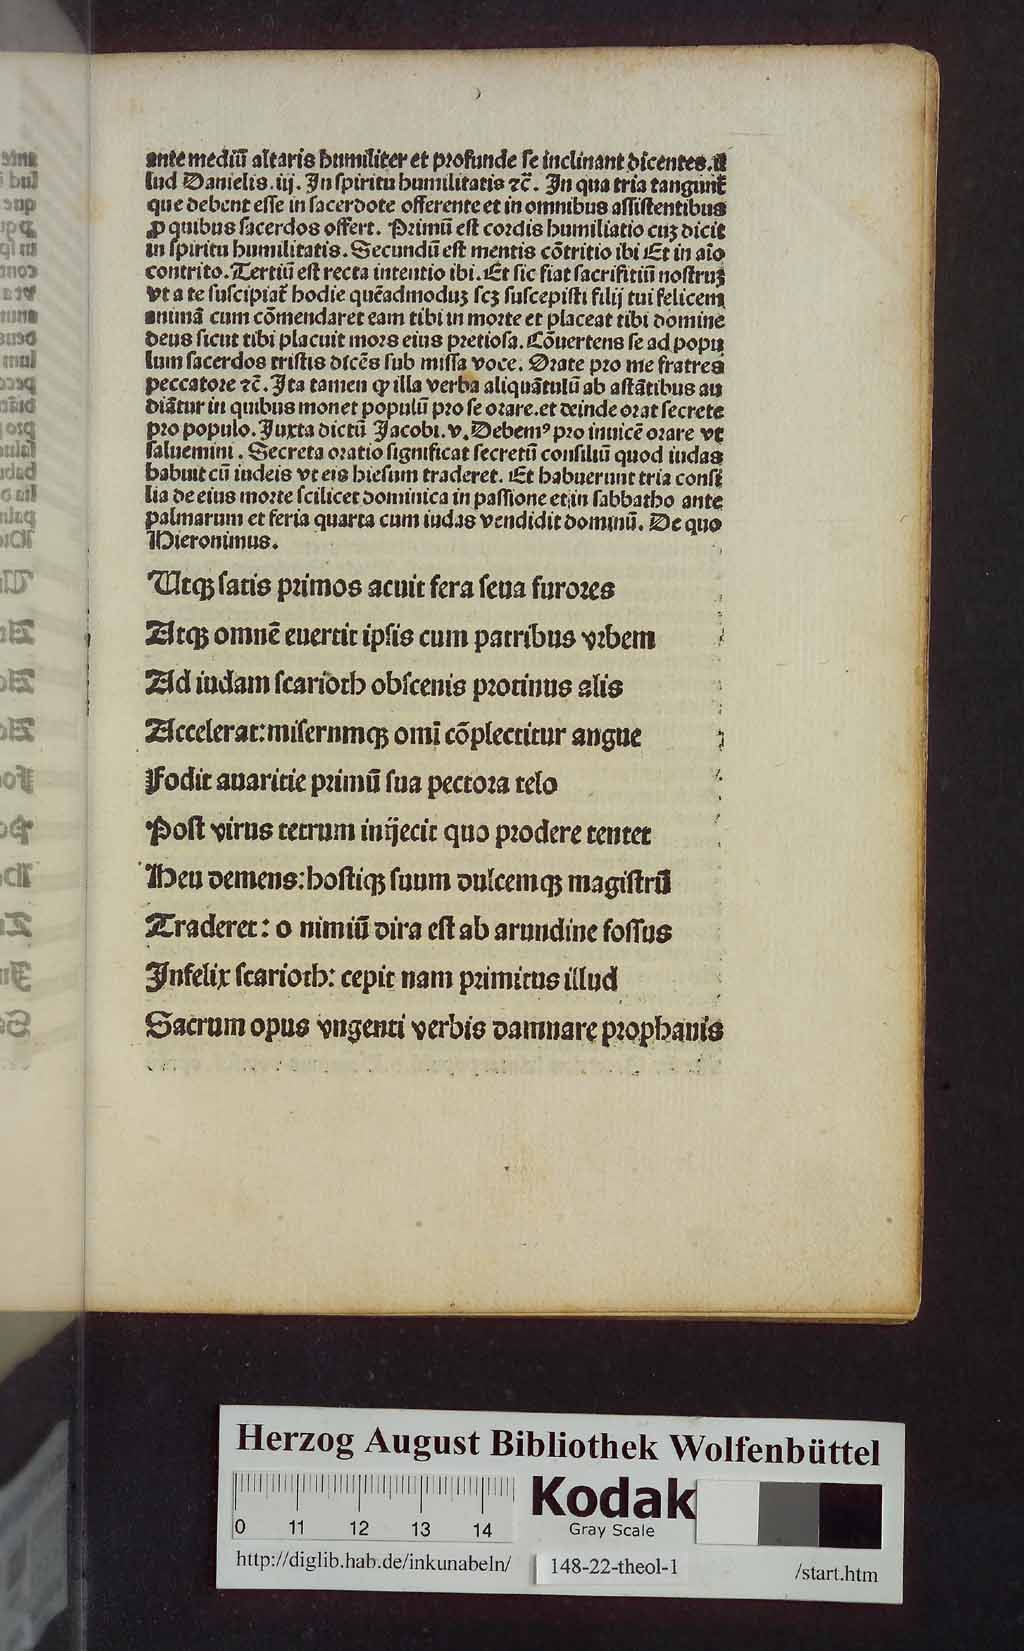 ante mediū altaris humiliter et profunde se inclinant dicentes. il
lud Danielis. iij. In spiritu humilitatis ⁊c̄. In qua tria tangunt᷑
que debent esse in sacerdote offerente et in omnibus assistentibus
ꝓ quibus sacerdos offert. Primū est cordis humiliatio cuꝫ dicit
in spiritu humilitatis. Secundū est mentis cōtritio ibi Et in aīo
contrito. Tertiū est recta intentio ibi. Et sic fiat sacrifitiū nostruꝫ
vt a te suscipiat᷑ hodie quēadmoduꝫ scꝫ suscepisti filij tui felicem
animā cum cōmendaret eam tibi in morte et placeat tibi domine
deus sicut tibi placuit mors eius pretiosa. Cōuertens se ad popu
lum sacerdos tristis dicēs sub missa voce. Orate pro me fratres
peccatore ⁊c̄. Ita tamen ꝙ illa verba aliquātulū ab astātibus au
diātur in quibus monet populū pro se orare. et deinde orat secrete
pro populo. Juxta dictū Jacobi. v. Debemꝰ pro inuicē orare vt
saluemini. Secreta oratio significat secretū consiliū quod iudas
habuit cū iudeis vt eis hiesum traderet. Et habuerunt tria consi
lia de eius morte scilicet dominica in passione et in sabbatho ante
palmarum et feria quarta cum iudas vendidit dominū. De quo
Hieronimus.
Utqꝫ satis primos acuit fera seua furores
Atqꝫ omnē euertit ipsis cum patribus vrbem
Ad iudam scarioth obscenis protinus alis
Accelerat: miserumqꝫ omī cōplectitur angue
Fodit auaritie primū sua pectora telo
Post virus tetrum inijecit quo prodere tentet
Heu demens: hostiqꝫ suum dulcemqꝫ magistrū
Traderet: o nimiū dira est ab arundine fossus
Infelix scarioth: cepit nam primitus illud
Sacrum opus vngenti verbis damnare prophanis
Herzog August Bibliothek Wolfenbüttel
0 11 12 13 14
Kodak
Gray Scale
http://diglib.hab.de/inkunabeln/ 148-22-theol-1 /start.htm